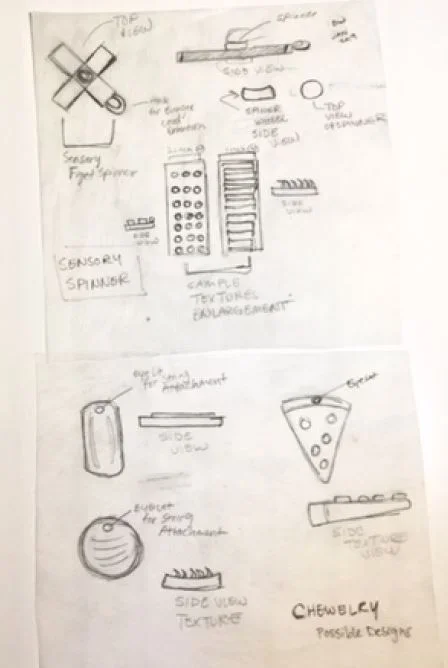 TOP
VIEW
SPINNER
SIDE VIEW
SPINNER
WHEEL
SIDE
VIEW
TOP
VIEW
OF SPINNER
Sensory
Fidget Spinner
SIDE
VIEW
SIDE
VIEW
SENSORY
SPINNER
SAMPLE
TEXTURES
ENLARGEMENT
EYELET
for String
Attachment
SIDE
VIEW
Eyelet
EYELET
for String
Attachment
SIDE
TEXTURE
VIEW
SIDE VIEW
TEXTURE
CHEWELRY
Possible Designs